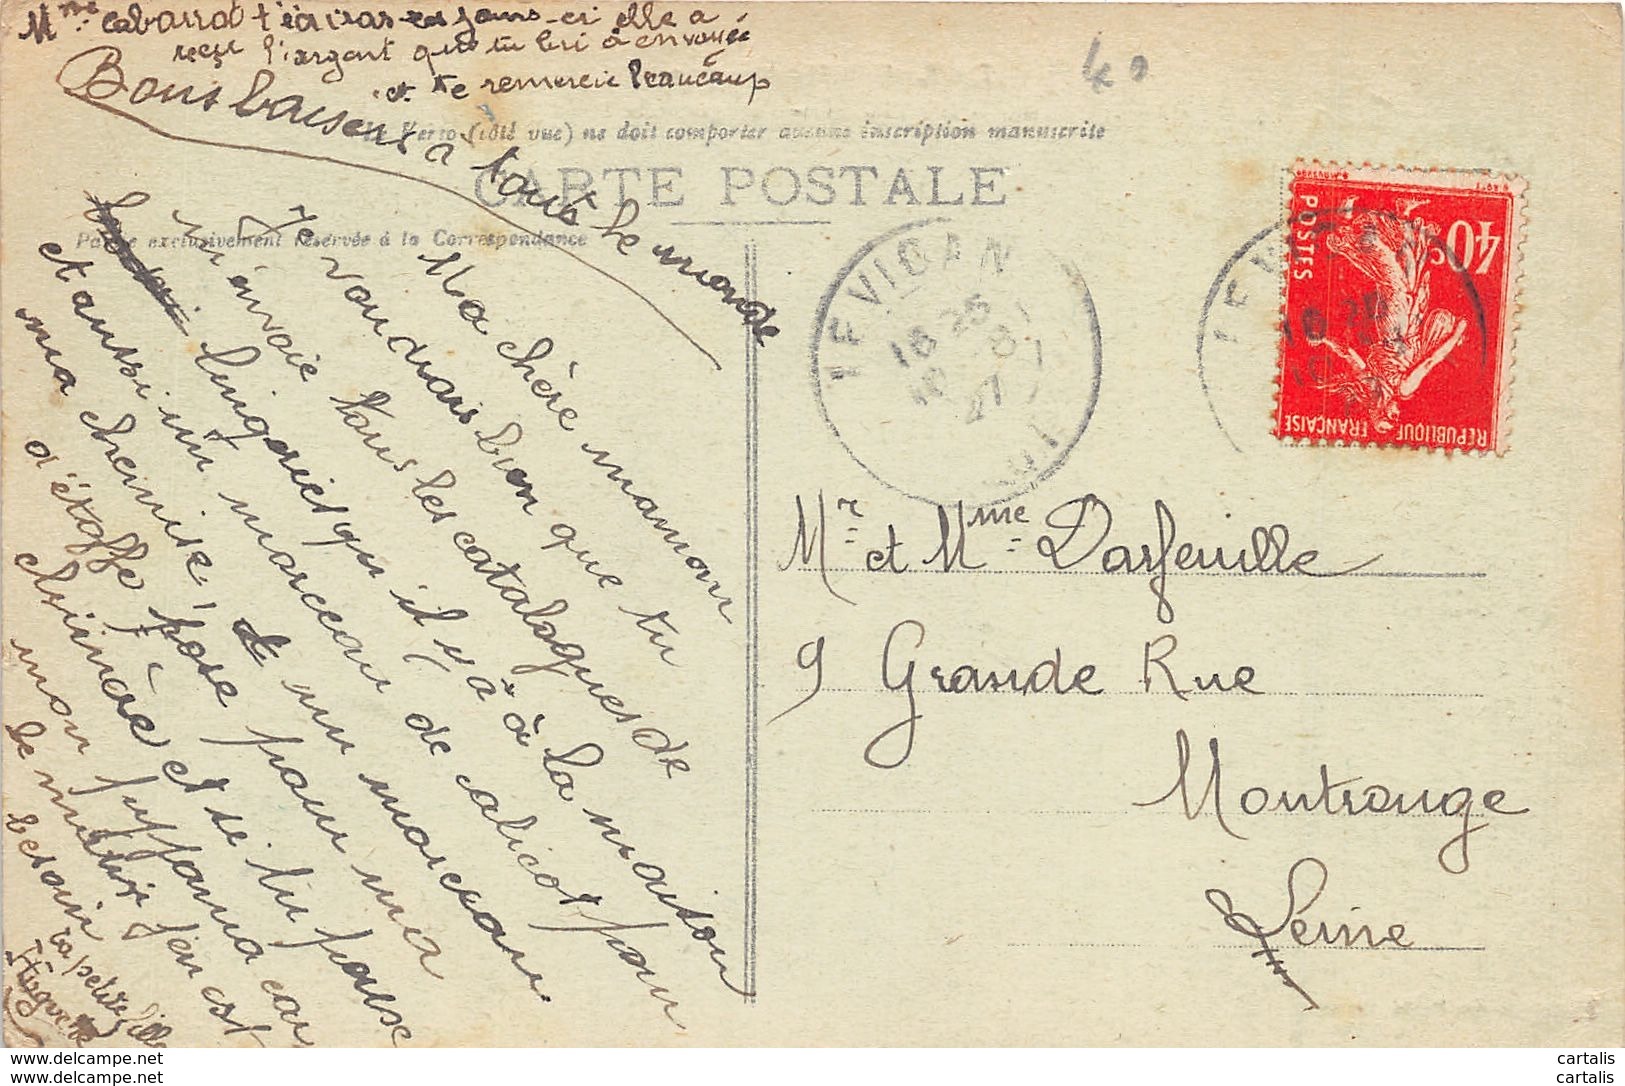 Mme Cabarrot t'écriras ces jours-ci elle a
reçu l'argent que tu lui a envoyée
et te remercie beaucoup
Bons baisers a tous le monde
Le Verso (côté vue) ne doit comporter aucune inscription manuscrite
CARTE POSTALE
Partie exclusivement réservée à la Correspondance
Ma chère maman
Je voudrais bien que tu
m'envoie tous les catalogues de
lingeries qu'il y a à la maison
et aussi un morceau de calicot pour
ma chemise, un morceau
d'étoffe rose pour ma
et si tu
mon car
le j'en est
besoin
ta petite fille
Huguette
40
LE VIGAN
18 25
10 8
27
LE VIGAN
18
40c
POSTES
RÉPUBLIQUE FRANÇAISE
Mr et Mme Darfeuille
9 Grande Rue
Montrouge
Seine
delcampe.net
delcampe.net
cartalis
cartalis